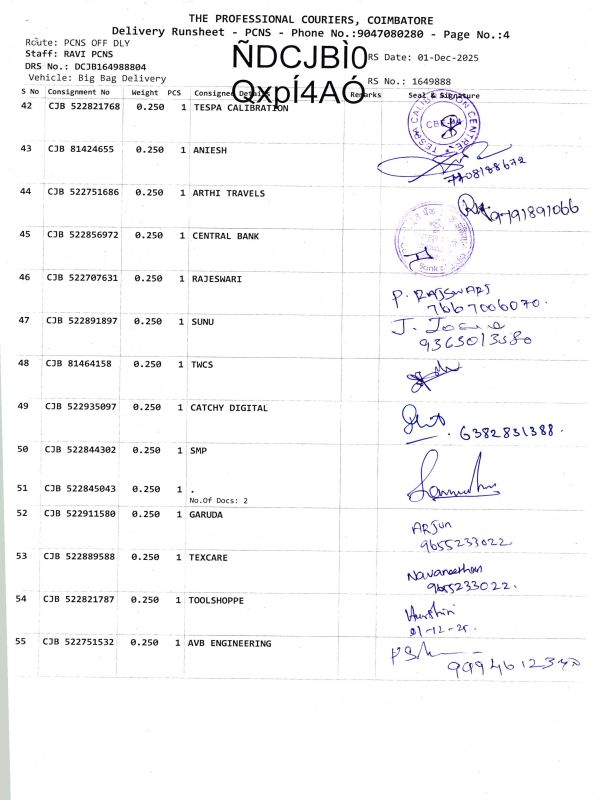 THE PROFESSIONAL COURIERS, COIMBATORE
Delivery Runsheet - PCNS - Phone No.:9047080280 - Page No.:4
Route: PCNS OFF DLY
Staff: RAVI PCNS
ÑDCJBÌ0
RS Date: 01-Dec-2025
DRS No.: DCJB164988804
Vehicle: Big Bag Delivery
QxpÍ4AÓ
RS No.: 1649888
S No Consignment No Weight PCS Consignee Details Remarks Seal & Signature
42 CJB 522821768 0.250 1 TESPA CALIBRATION
TESPA CALIBRATION CENTRE
43 CJB 81424655 0.250 1 ANIESH
7708188672
44 CJB 522751686 0.250 1 ARTHI TRAVELS
9791891066
45 CJB 522856972 0.250 1 CENTRAL BANK
46 CJB 522707631 0.250 1 RAJESWARI
P. RAJSWARI
7667006070.
47 CJB 522891897 0.250 1 SUNU
9365013580
48 CJB 81464158 0.250 1 TWCS
49 CJB 522935097 0.250 1 CATCHY DIGITAL
6382831388.
50 CJB 522844302 0.250 1 SMP
51 CJB 522845043 0.250 1 .
No.Of Docs: 2
52 CJB 522911580 0.250 1 GARUDA
Arjun
9655233022
53 CJB 522889588 0.250 1 TEXCARE
Navaneethan
9655233022.
54 CJB 522821787 0.250 1 TOOLSHOPPE
01-12-25.
55 CJB 522751532 0.250 1 AVB ENGINEERING